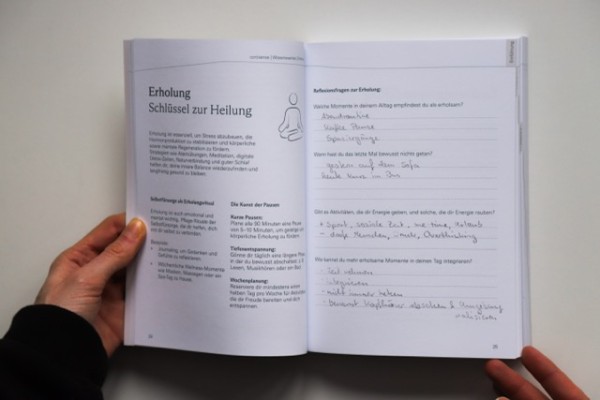 Erholung
Schlüssel zur Heilung
Erholung ist essenziell, um Stress abzubauen, die
Hormonproduktion zu stabilisieren und körperliche
sowie mentale Regeneration zu fördern.
Strategien wie Atemübungen, Meditation, digitale
Detox-Zeiten, Naturverbindung und guter Schlaf
helfen dir, deine innere Balance wiederzufinden und
langfristig gesund zu bleiben.
Selbstfürsorge als Erholungsritual
Erholung ist auch emotional und
mental wichtig. Pflege Rituale der
Selbstfürsorge, die dir helfen, dich
Journaling, um Gedanken und
Gefühle zu reflektieren.
Wöchentliche Wellness-Momente
wie Masken, Massagen oder ein
Spa-Tag zu Hause.
Die Kunst der Pausen
Kurze Pausen:
Plane alle 90 Minuten eine Pause
von 5–10 Minuten, um geistige
körperliche Erholung zu
Tiefenentspannung:
Gönne dir täglich eine längere
in der du bewusst abschaltest,
Lesen, Musikhören oder ein Bad.
Wochenplanung:
Reserviere dir mindestens einen
halben Tag pro Woche für
die dir Freude bereiten und dich
entspannen.
Reflexionsfragen zur Erholung:
Welche Momente in deinem Alltag empfindest du als erholsam?
Abendroutine
Kaffee Pause
Spaziergänge
Wann hast du das letzte Mal bewusst nichts getan?
gestern auf dem Sofa
heute kurz im
Gibt es Aktivitäten, die dir Energie geben, und solche, die dir Energie rauben?
+ Sport, soziale Zeit, me time,
- Menschen, Overthinking
Wie kannst du mehr erholsame Momente in deinem Tag integrieren?
- Zeit nehmen
- integrieren
- nicht immer
- bewusst &